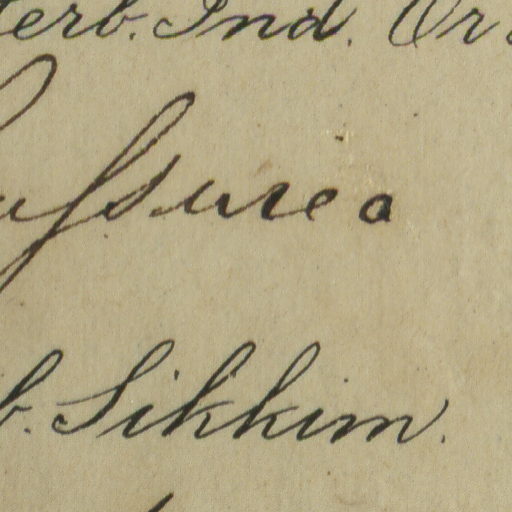 erb. Ind. Or
ussurea
b. Sikkim.